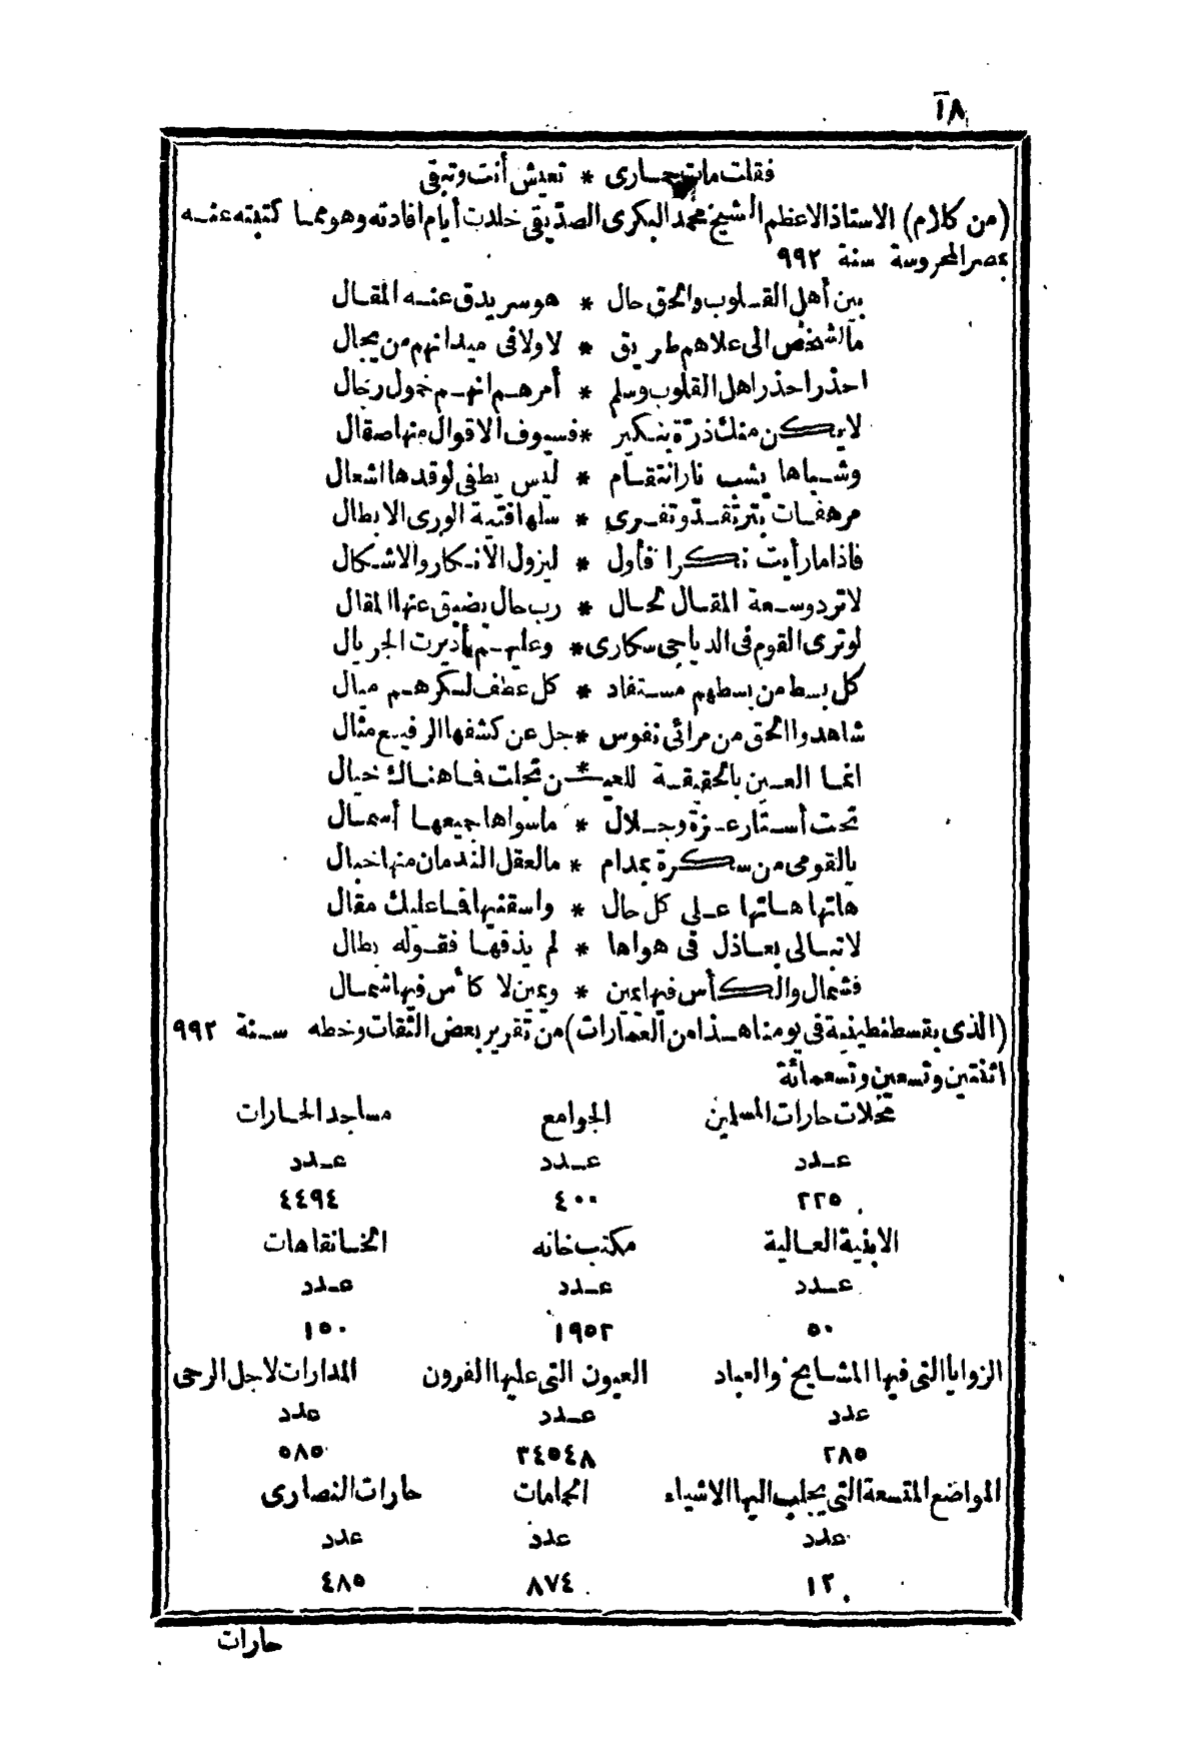 ١٨
فقلت مات حماری * تعیش أنت وتبقی
(من کلام) الاستاذ الاعظم الشیخ محمد البکری الصدّیقی خلدت أیام افادته وهو مما کتبته عنه
بمصر المحروسة سنة ٩٩٢
بین أهل القلوب والحق حال * هو سر یدق عنه المقال
مالشخص الی علاهم طریق * لا ولا فی میدانهم من یجال
احذر احذر اهل القلوب وسلم * أمرهم انهم فحول رجال
لا یکن منك ذرّة بنکیر * فسیوف الاقوال منها صقال
وشباها یشب نار انتقام * لیس یطفی لوقدها اشعال
مرهفات بتر تقدّ وتفری * سلها فتیة الوری الابطال
فاذا ما رأیت نکرا فأول * لیزول الانکار والاشکال
لا ترد وسعة المقال لحال * رب حال یضیق عنها المقال
لو تری القوم فی الدیاجی سکاری * وعلیهم أدیرت الجریال
کل بسط من بسطهم مستفاد * کل عطف لسکرهم میال
شاهدوا الحق من مرائی نفوس * جل عن کشفها الرفیع مثال
انما العین بالحقیقة للعین * تجلت فما هناك خیال
تحت أستار عزة وجلال * ما سواها جمیعها أسمال
یالقومی من سکرة بمدام * ما لعقل الندمان منها خبال
هاتها هاتها علی کل حال * واسقنیها فما علیك مقال
لا تبالی بعاذل فی هواها * لم یذقها فقوله بطال
فشمال والکأس فیها یمین * ویمین لا کأس فیها شمال
(الذی بقسطنطینیة فی یومنا هذا من العمارات) من تقریر بعض الثقات وخطه سنة ٩٩٢
اثنتین وتسعین وتسعمائة
محلات حارات المسلمین الجوامع مساجد الحارات
عدد عدد عدد
٢٢٥ ٤٠٠ ٤٤٩٤
الابنیة العالیة مکتب خانه الخانقاهات
عدد عدد عدد
٥٠ ١٩٥٢ ١٥٠
الزوایا التی فیها المشایخ والعباد العیون التی علیها الفرون المدارات لاجل الرحی
عدد عدد عدد
٢٨٥ ٣٤٥٤٨ ٥٨٥
المواضع المتسعة التی یجلب الیها الاشیاء الحمامات حارات النصاری
عدد عدد عدد
١٢ ٨٧٤ ٤٨٥
حارات